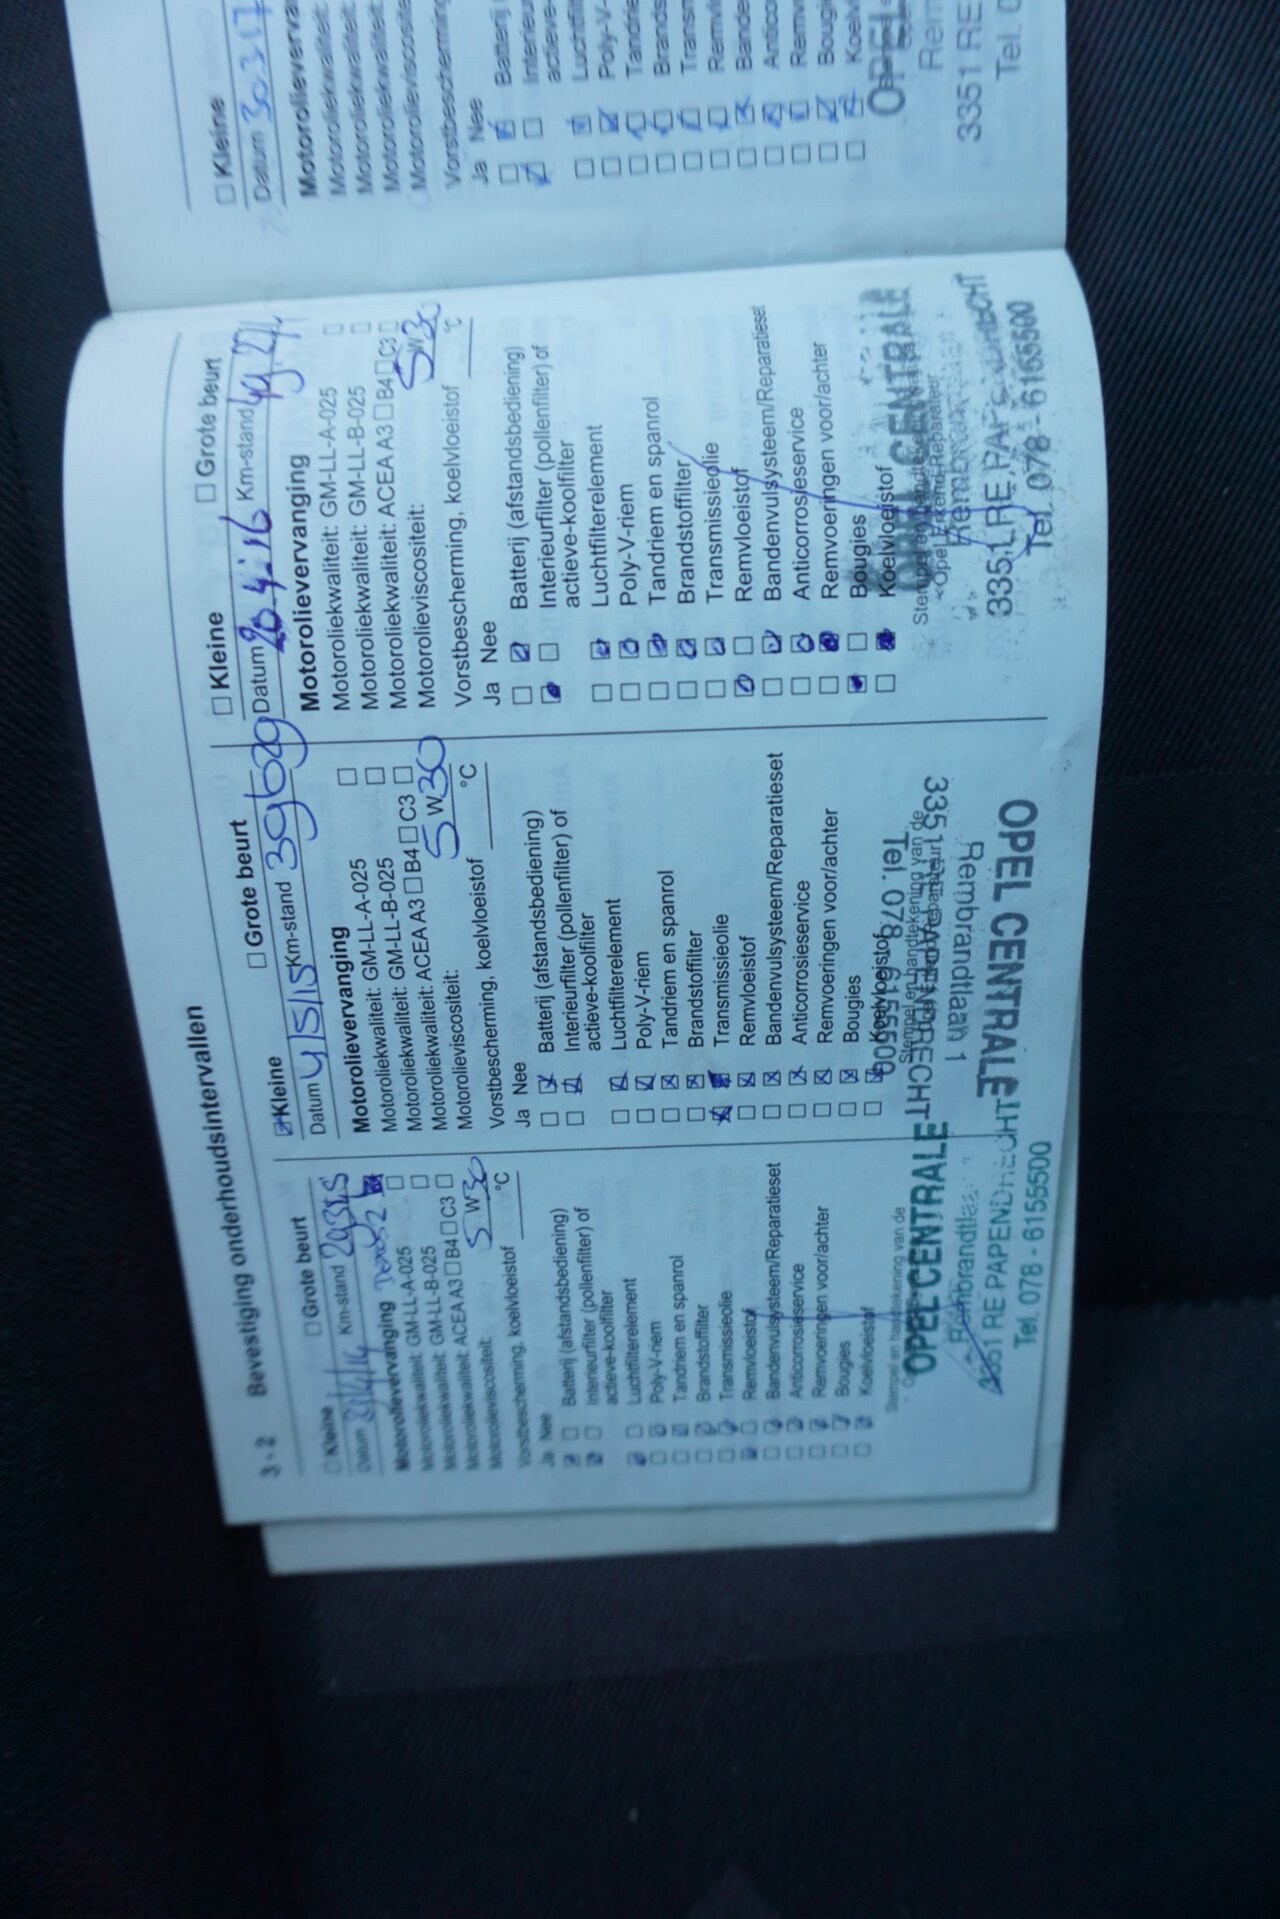 3 - 2 Bevestiging onderhoudsintervallen
Kleine Grote beurt
Datum Km-stand 29345
Motorolievervanging Dexos 2
Motoroliekwaliteit: GM-LL-A-025
Motoroliekwaliteit: GM-LL-B-025
Motoroliekwaliteit: ACEA A3 B4 C3
Motorolieviscositeit: 5 W 30
Vorstbescherming, koelvloeistof °C
Ja Nee
Batterij (afstandsbediening)
Interieurfilter (pollenfilter) of
actieve-koolfilter
Luchtfilterelement
Poly-V-riem
Tandriem en spanrol
Brandstoffilter
Transmissieolie
Remvloeistof
Bandenvulsysteem/Reparatieset
Anticorrosieservice
Remvoeringen voor/achter
Bougies
Koelvloeistof
Stempel en handtekening van de
OPEL CENTRALE
Rembrandtlaan
3351 RE PAPENDRECHT
Tel. 078 - 6155500
Kleine Grote beurt
Datum 4/5/15 Km-stand 39629
Motorolievervanging
Motoroliekwaliteit: GM-LL-A-025
Motoroliekwaliteit: GM-LL-B-025
Motoroliekwaliteit: ACEA A3 B4 C3
Motorolieviscositeit: 5 W 30
Vorstbescherming, koelvloeistof °C
Ja Nee
Batterij (afstandsbediening)
Interieurfilter (pollenfilter) of
actieve-koolfilter
Luchtfilterelement
Poly-V-riem
Tandriem en spanrol
Brandstoffilter
Transmissieolie
Remvloeistof
Bandenvulsysteem/Reparatieset
Anticorrosieservice
Remvoeringen voor/achter
Bougies
Koelvloeistof
Stempel en handtekening van de
OPEL CENTRALE
Rembrandtlaan 1
3351 RE PAPENDRECHT
Tel. 078 - 6155500
Kleine Grote beurt
Datum 20.4.16 Km-stand
Motorolievervanging
Motoroliekwaliteit: GM-LL-A-025
Motoroliekwaliteit: GM-LL-B-025
Motoroliekwaliteit: ACEA A3 B4 C3
Motorolieviscositeit: 5 W 30
Vorstbescherming, koelvloeistof °C
Ja Nee
Batterij (afstandsbediening)
Interieurfilter (pollenfilter) of
actieve-koolfilter
Luchtfilterelement
Poly-V-riem
Tandriem en spanrol
Brandstoffilter
Transmissieolie
Remvloeistof
Bandenvulsysteem/Reparatieset
Anticorrosieservice
Remvoeringen voor/achter
Bougies
Koelvloeistof
Opel Erkend Reparateur
OPEL CENTRALE
3351 RE PAPENDRECHT
Tel. 078 - 6155500
Kleine
Datum 30.3.17
Motorolieverva
Motoroliekwaliteit:
Motoroliekwaliteit:
Motoroliekwaliteit:
Motorolieviscosite
Vorstbescherming
Ja Nee
Batterij
Interieu
actieve-
Luchtfilt
Poly-V-
Tandrie
Brands
Transm
Remvlo
Bande
Antico
Remv
Bougi
Koelv
OPEL
Rem
3351 RE
Tel. 0